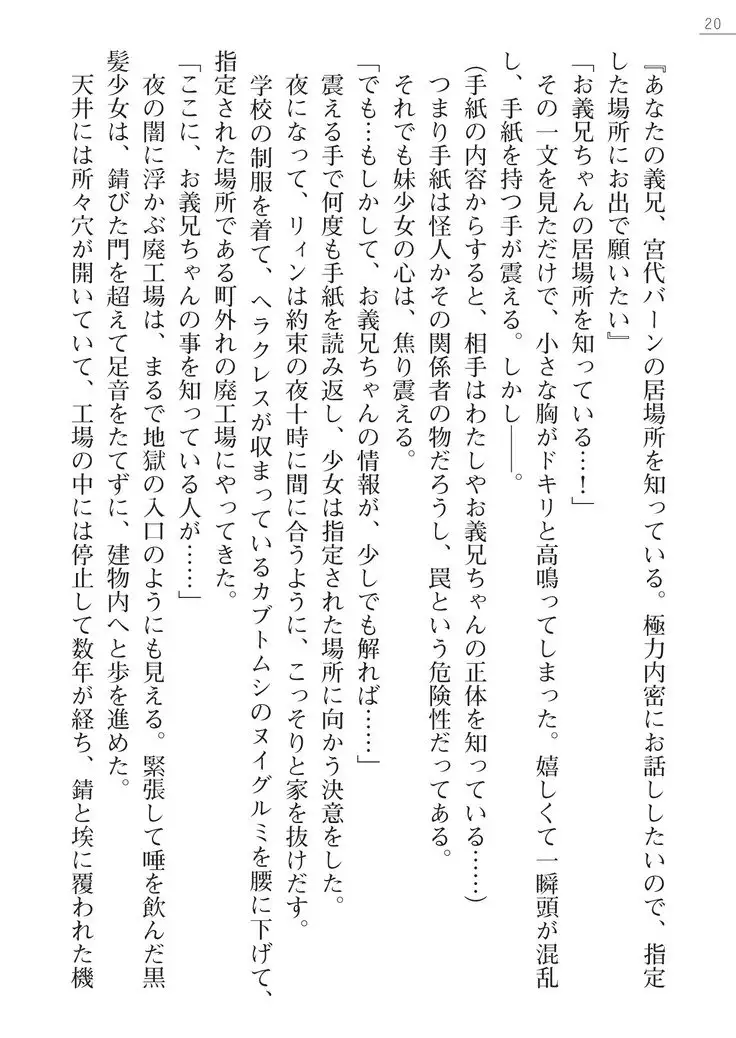 20
『あなたの義兄、宮代バーンの居場所を知っている。極力内密にお話ししたいので、指定
した場所にお出で願いたい』
「お義兄ちゃんの居場所を知っている…！」
　その一文を見ただけで、小さな胸がドキリと高鳴ってしまった。嬉しくて一瞬頭が混乱
し、手紙を持つ手が震える。しかし――。
（手紙の内容からすると、相手はわたしやお義兄ちゃんの正体を知っている……）
　つまり手紙は怪人かその関係者の物だろうし、罠という危険性だってある。
　それでも妹少女の心は、焦り震える。
「でも…もしかして、お義兄ちゃんの情報が、少しでも解れば……」
　震える手で何度も手紙を読み返し、少女は指定された場所に向かう決意をした。
　夜になって、リィンは約束の夜十時に間に合うように、こっそりと家を抜けだす。
　学校の制服を着て、ヘラクレスが収まっているカブトムシのヌイグルミを腰に下げて、
指定された場所である町外れの廃工場にやってきた。
「ここに、お義兄ちゃんの事を知っている人が……」
　夜の闇に浮かぶ廃工場は、まるで地獄の入口のようにも見える。緊張して唾を飲んだ黒
髪少女は、錆びた門を超えて足音をたてずに、建物内へと歩を進めた。
　天井には所々穴が開いていて、工場の中には停止して数年が経ち、錆と埃に覆われた機